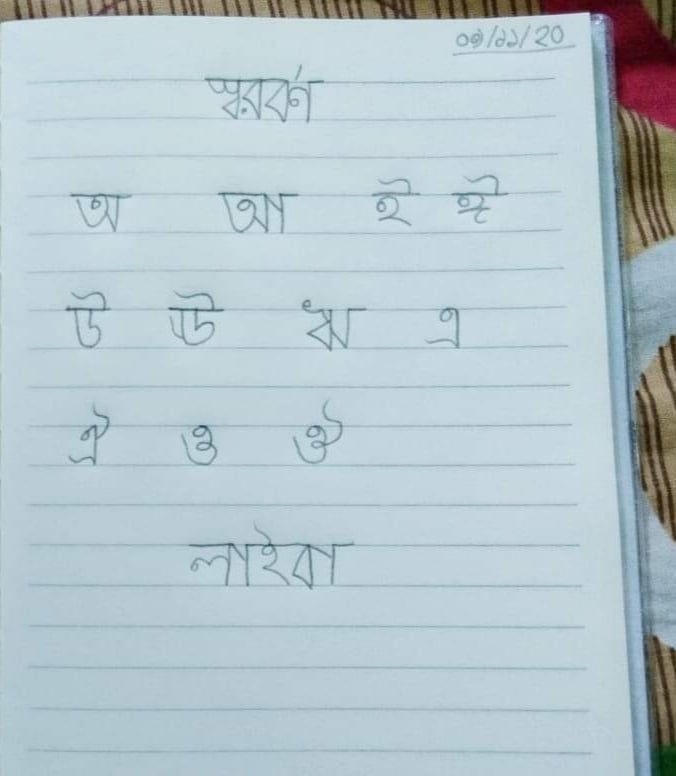 ০৩/১১/20
স্বরবর্ণ
অ আ ই ঈ
উ ঊ ঋ এ
ঐ ও ঔ
লাইবা